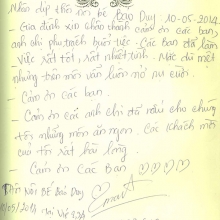 Nhân dịp thôi nôi bé Bảo Duy: 10-05-2014
- Gia đình xin chân thành cảm ơn các bạn,
anh chị phụ trách buổi tiệc. Các bạn đã làm
việc rất tốt, rất nhiệt tình. Mặc dù mệt
nhưng trên môi vẫn luôn nở nụ cười.
- Cảm ơn các bạn.
- Cảm ơn các anh chị đã nấu cho chúng
tôi những món ăn ngon. Các khách mời
của tôi rất hài lòng.
Cảm ơn Các Bạn ♡♡♡♡
Thôi Nôi Bé Bảo Duy
10/05/2014